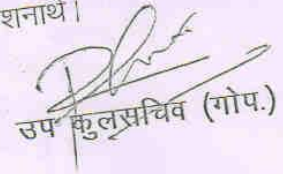 शनार्थ।
उप कुलसचिव (गोप.)